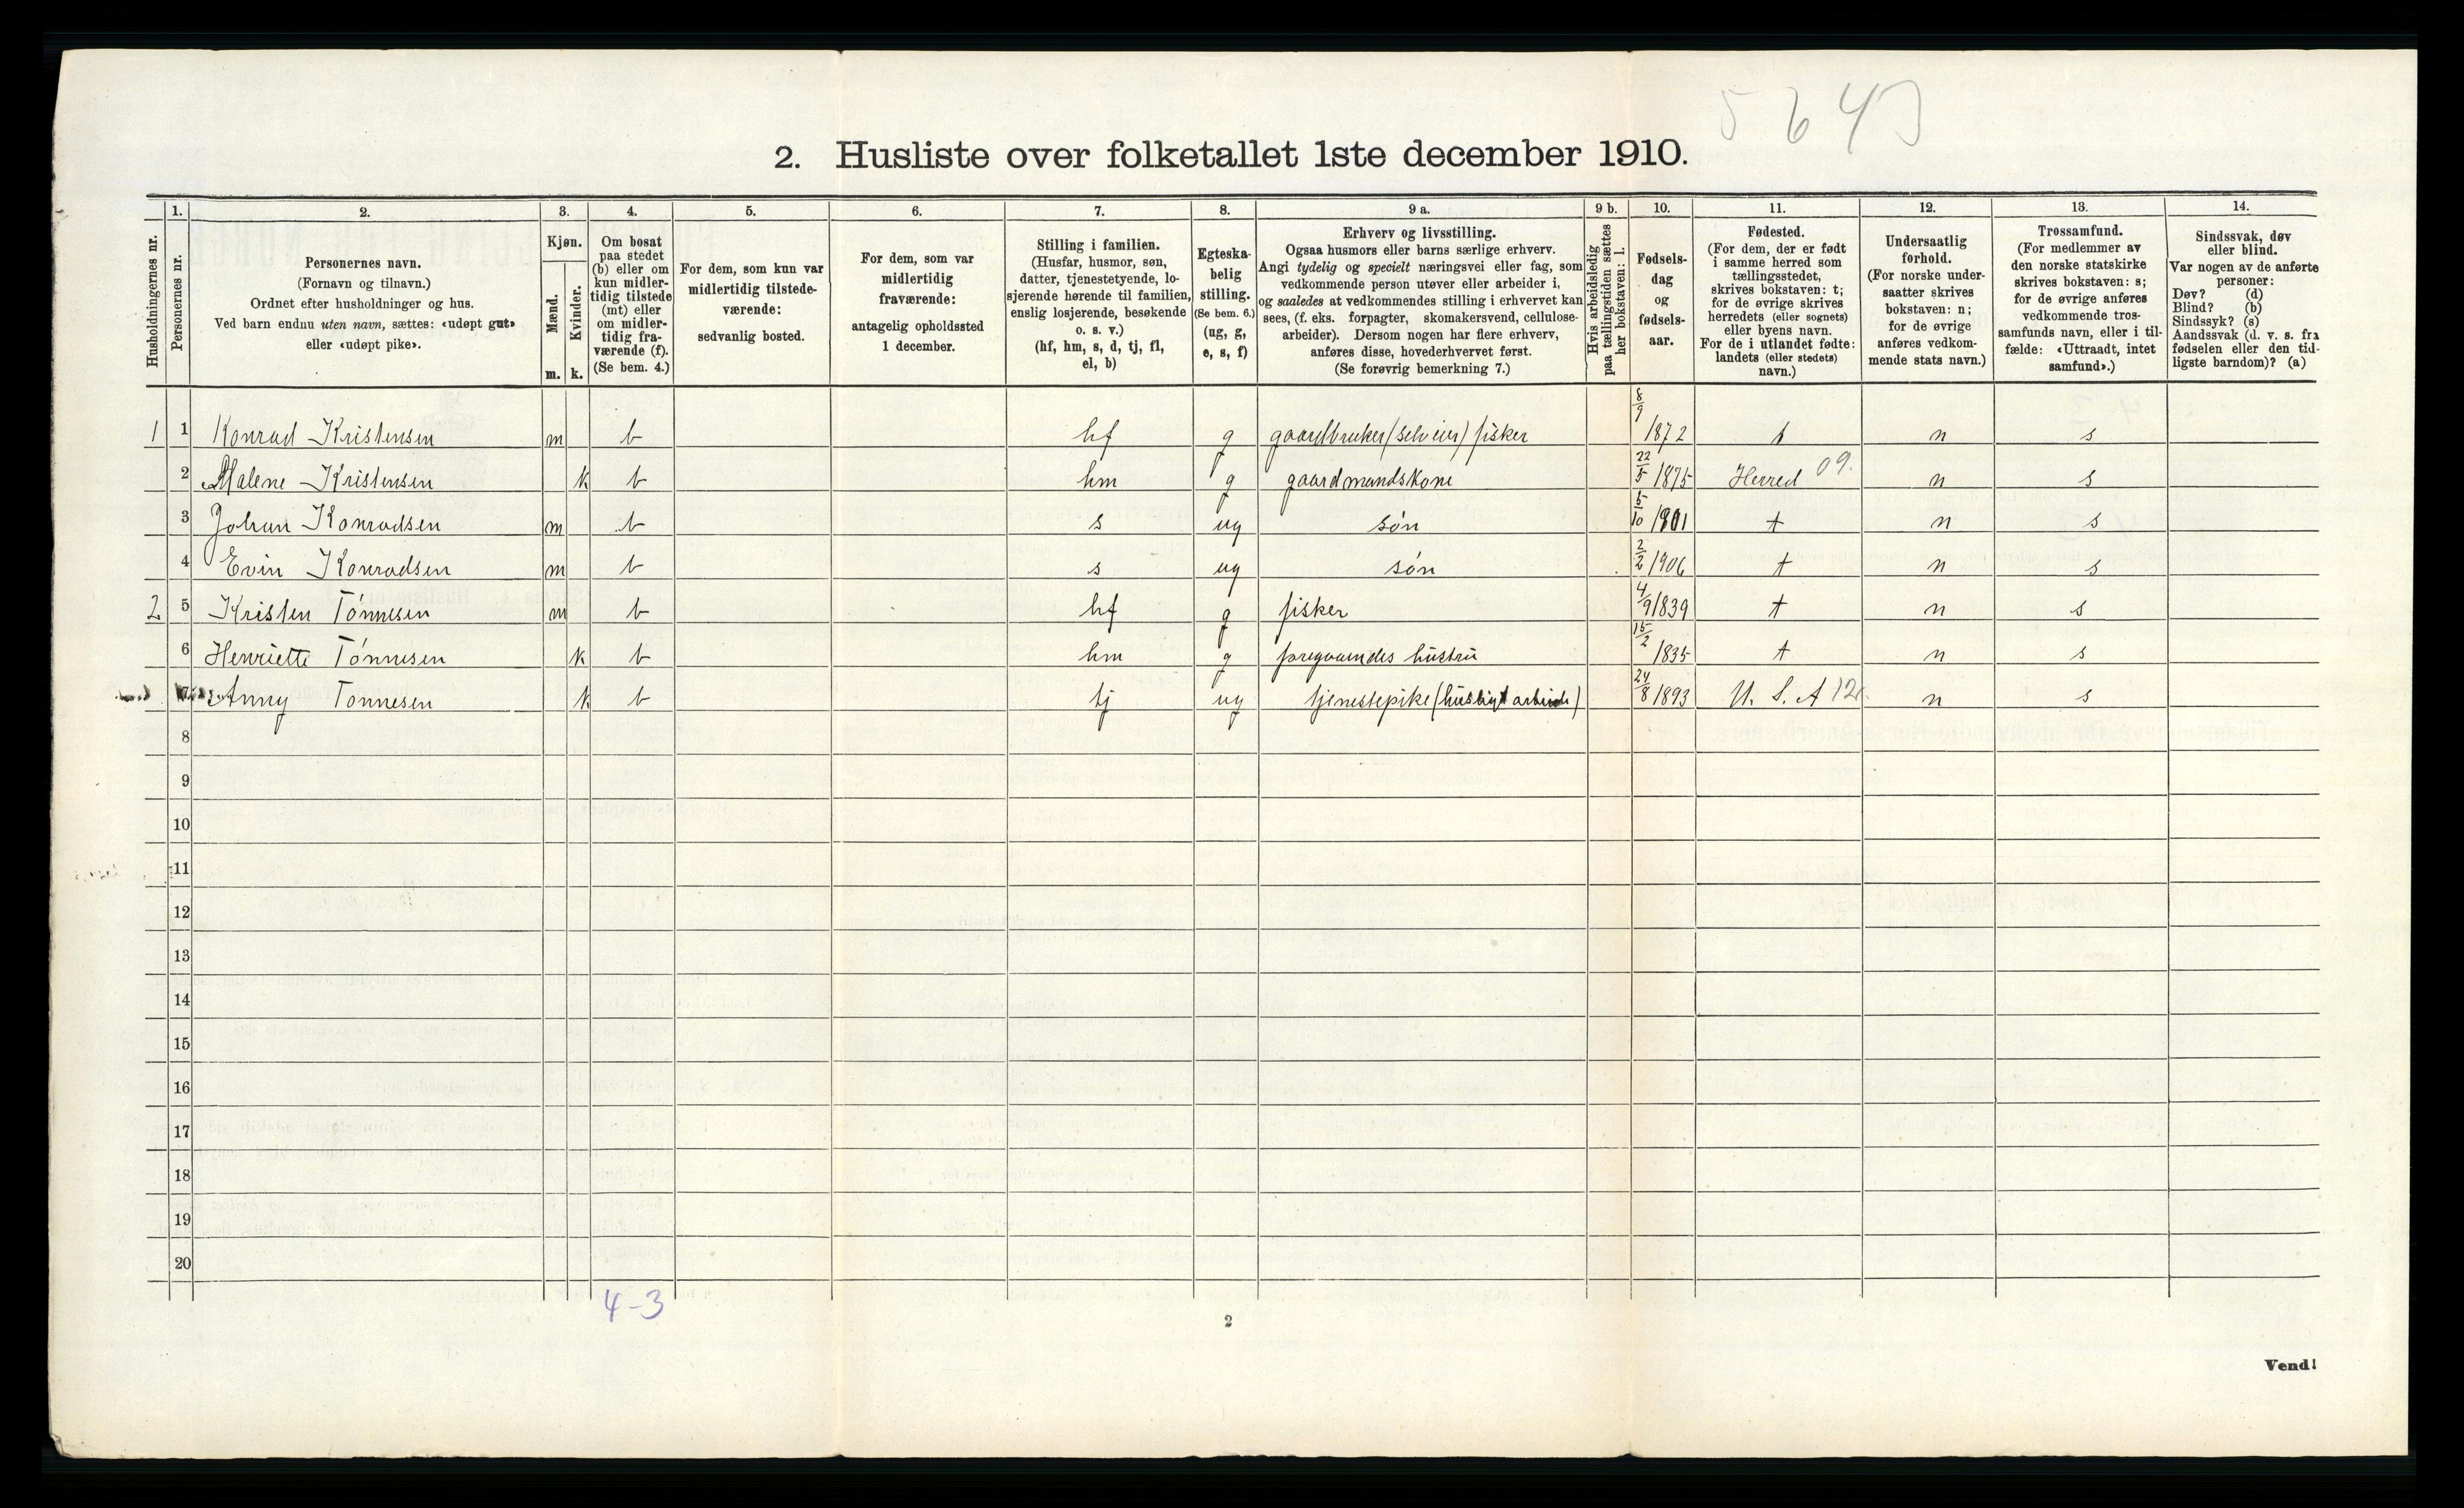 5643
2. Husliste over folketallet 1ste december 1910.
Husholdningernes nr.
1.
Personernes nr.
2.
Personernes navn.
(Fornavn og tilnavn.)
Ordnet efter husholdninger og hus.
Ved barn endnu uten navn, sættes: «udøpt gut»
eller «udøpt pike».
3.
Kjøn.
Mænd.
Kvinder.
m. k.
4.
Om bosat
paa stedet
(b) eller om
kun midler-
tidig tilstede
(mt) eller
om midler-
tidig fra-
værende (f).
(Se bem. 4.)
5.
For dem, som kun var
midlertidig tilstede-
værende:
sedvanlig bosted.
6.
For dem, som var
midlertidig
fraværende:
antagelig opholdssted
1 december.
7.
Stilling i familien.
(Husfar, husmor, søn,
datter, tjenestetyende, lo-
sjerende hørende til familien,
enslig losjerende, besøkende
o. s. v.)
(hf, hm, s, d, tj, fl,
el, b)
8.
Egteska-
belig
stilling.
(Se bem. 6.)
(ug, g,
e, s, f)
9 a.
Erhverv og livsstilling.
Ogsaa husmors eller barns særlige erhverv.
Angi tydelig og specielt næringsvei eller fag, som
vedkommende person utøver eller arbeider i,
og saaledes at vedkommendes stilling i erhvervet kan
sees, (f. eks. forpagter, skomakersvend, cellulose-
arbeider). Dersom nogen har flere erhverv,
anføres disse, hovederhvervet først.
(Se forøvrig bemerkning 7.)
9 b.
Hvis arbeidsledig
paa tællingstiden sættes
her bokstaven: l.
10.
Fødsels-
dag
og
fødsels-
aar.
11.
Fødested.
(For dem, der er født
i samme herred som
tællingsstedet,
skrives bokstaven: t;
for de øvrige skrives
herredets (eller sognets)
eller byens navn.
For de i utlandet fødte:
landets (eller stedets)
navn.)
12.
Undersaatlig
forhold.
(For norske under-
saatter skrives
bokstaven: n;
for de øvrige
anføres vedkom-
mende stats navn.)
13.
Trossamfund.
(For medlemmer av
den norske statskirke
skrives bokstaven: s;
for de øvrige anføres
vedkommende tros-
samfunds navn, eller i til-
fælde: «Uttraadt, intet
samfund».)
14.
Sindssvak, døv
eller blind.
Var nogen av de anførte
personer:
Døv? (d)
Blind? (b)
Sindssyk? (s)
Aandssvak (d. v. s. fra
fødselen eller den tid-
ligste barndom)? (a)
1 1 Konrad Kristensen m b hf g gaardbruker (selveier) fisker 8/9 1872 t n s
2 Malene Kristensen k b hm g gaardmandskone 22/5 1875 Herred 09. n s
3 Johan Konradsen m b s ug søn 5/10 1901 t n s
4 Evin Konradsen m b s ug søn 2/2 1906 t n s
2 5 Kristen Tønnesen m b hf g fisker 4/9 1839 t n s
6 Henriette Tønnesen k b hm g foregaaendes hustru 15/2 1835 t n s
7 Anny Tønnesen k b tj ug tjenestepike (husligt arbeide) 24/8 1893 U. S. A 12. n s
8
9
10
11
12
13
14
15
16
17
18
19
20
4-3
2
Vend!